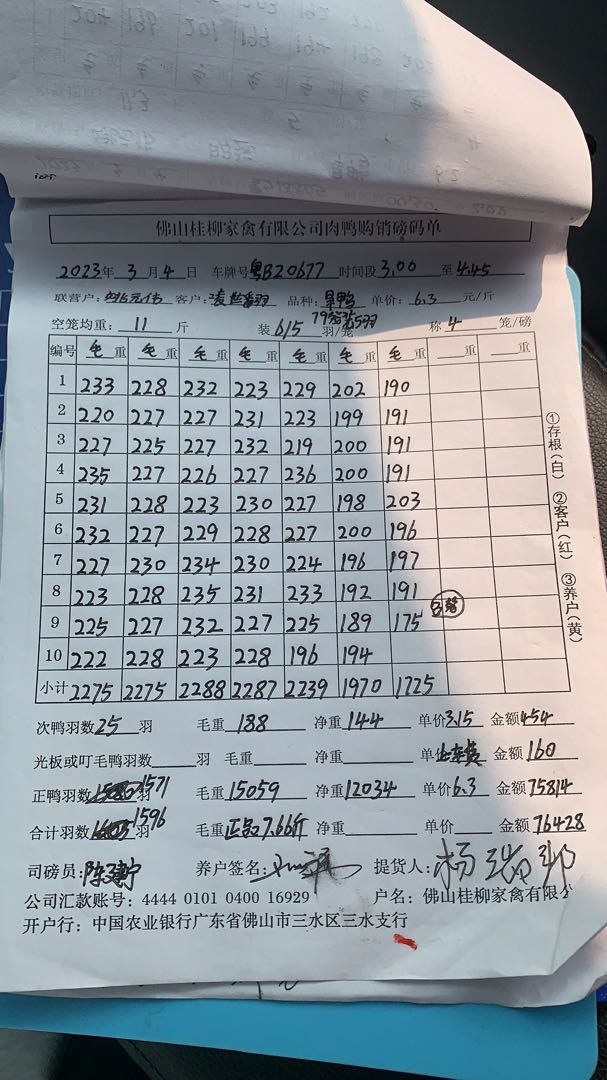 佛山桂柳家禽有限公司肉鸭购销磅码单
2023年 3月 4日 车牌号粤B20677 时间段 3.00 至 4.45
联营户: 客户: 品种: 单价: 6.3 元/斤
空笼均重: 11 斤 装 6/5 羽/笼 称 4 笼/磅
编号 毛重 毛重 毛重 毛重 毛重 毛重 毛重 重 重
1 233 228 232 223 229 202 190
2 220 227 227 231 223 199 191
3 227 225 227 232 219 200 191
4 235 227 226 227 236 200 191
5 231 228 223 230 227 198 203
6 232 227 229 228 227 200 196
7 227 230 234 230 224 196 197
8 223 228 235 231 233 192 191
9 225 227 232 227 225 189 175 3笼
10 222 228 223 228 196 194
小计 2275 2275 2288 2287 2239 1970 1725
①存根(白) ②客户(红) ③养户(黄)
次鸭羽数 25 羽 毛重 188 净重 144 单价 3.15 金额 454
光板或叮毛鸭羽数 羽 毛重 净重 单 金额 160
正鸭羽数 1571 羽 毛重 15059 净重 12034 单价 6.3 金额 75814
合计羽数 1596 羽 毛重 正品7.66斤 净重 单价 金额 76428
司磅员: 养户签名: 提货人:
公司汇款账号: 4444 0101 0400 16929 户名: 佛山桂柳家禽有限公
开户行: 中国农业银行广东省佛山市三水区三水支行